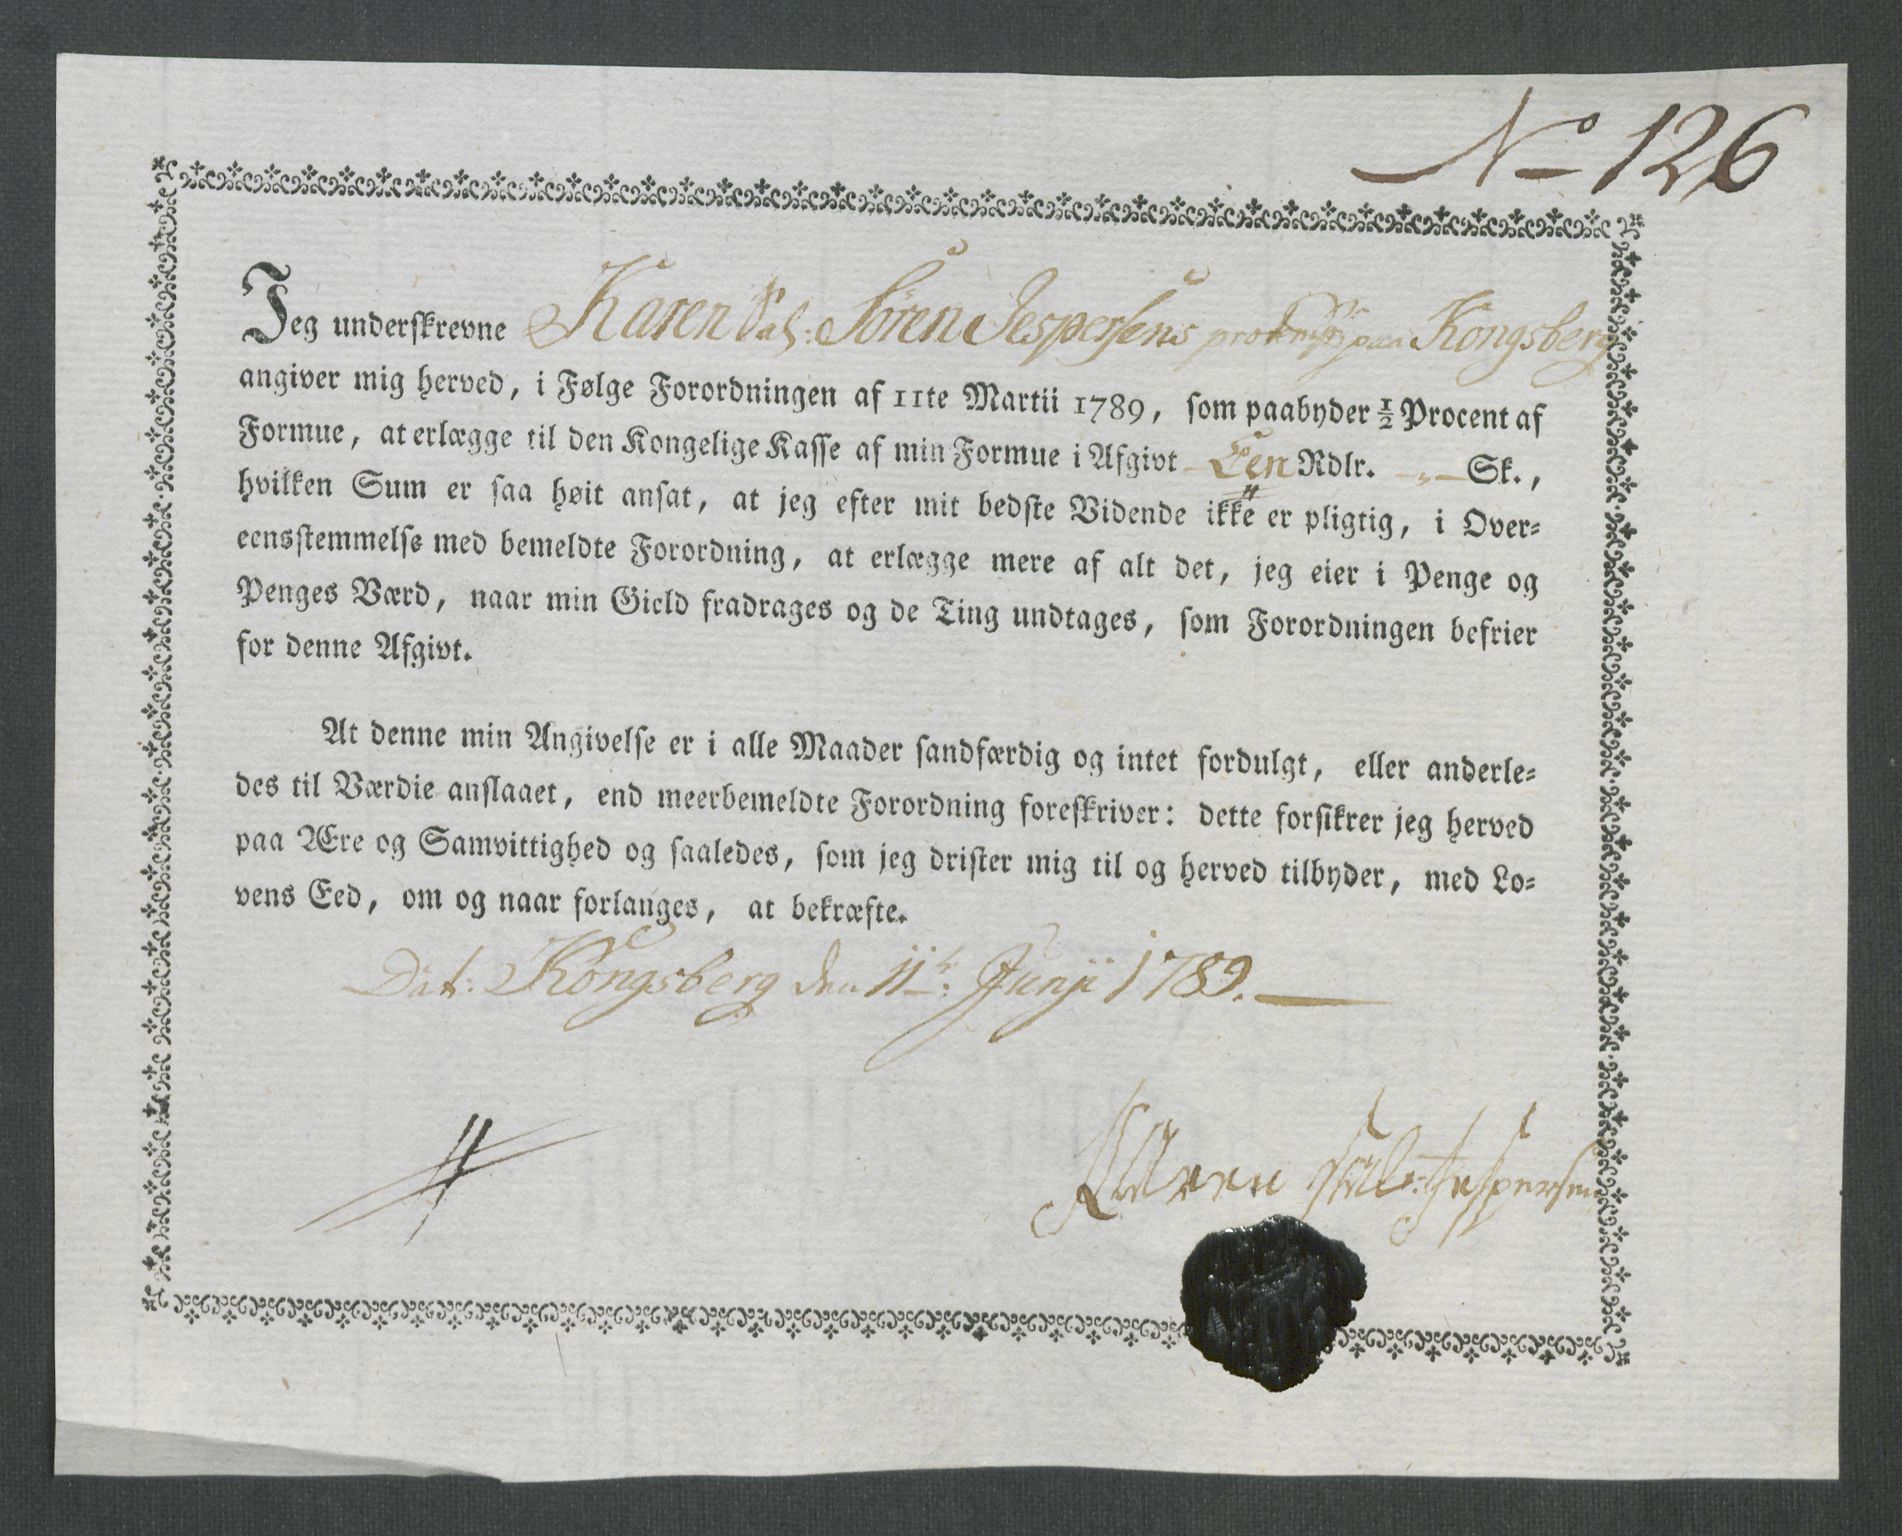 No 126
Jeg underskrevne Karen Sal: Søren Jespersens paa Kongsberg
angiver mig herved, i Følge Forordningen af 11te Martii 1789, som paabyder 1/2 Procent af
Formue, at erlægge til den Kongelige Kasse af min Formue i Afgivt - Een Rdlr. - „ - Sk.,
hvilken Sum er saa høit ansat, at jeg efter mit bedste Vidende ikke er pligtig, i Over-
eensstemmelse med bemeldte Forordning, at erlægge mere af alt det, jeg eier i Penge og
Penges Værd, naar min Gield fradrages og de Ting undtages, som Forordningen befrier
for denne Afgivt.
At denne min Angivelse er i alle Maader sandfærdig og intet fordulgt, eller anderle-
des til Værdie anslaaet, end meerbemeldte Forordning foreskriver: dette forsikrer jeg herved
paa Ære og Samvittighed og saaledes, som jeg drister mig til og herved tilbyder, med Lo-
vens Eed, om og naar forlanges, at bekræfte.
Dat: Kongsberg den 11te Junii 1789.
Karen Sal: Jespersens